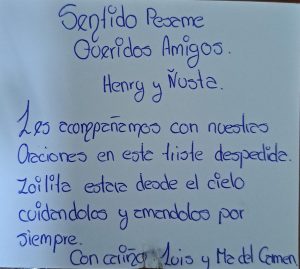 Sentido Pesame
Queridos Amigos.
Henry y Ñusta.
Les acompañamos con nuestras
Oraciones en este triste despedida.
Zoilita estara desde el cielo
cuidandolos y amandolos por
siempre.
Con cariño Luis y Ma del Carmen